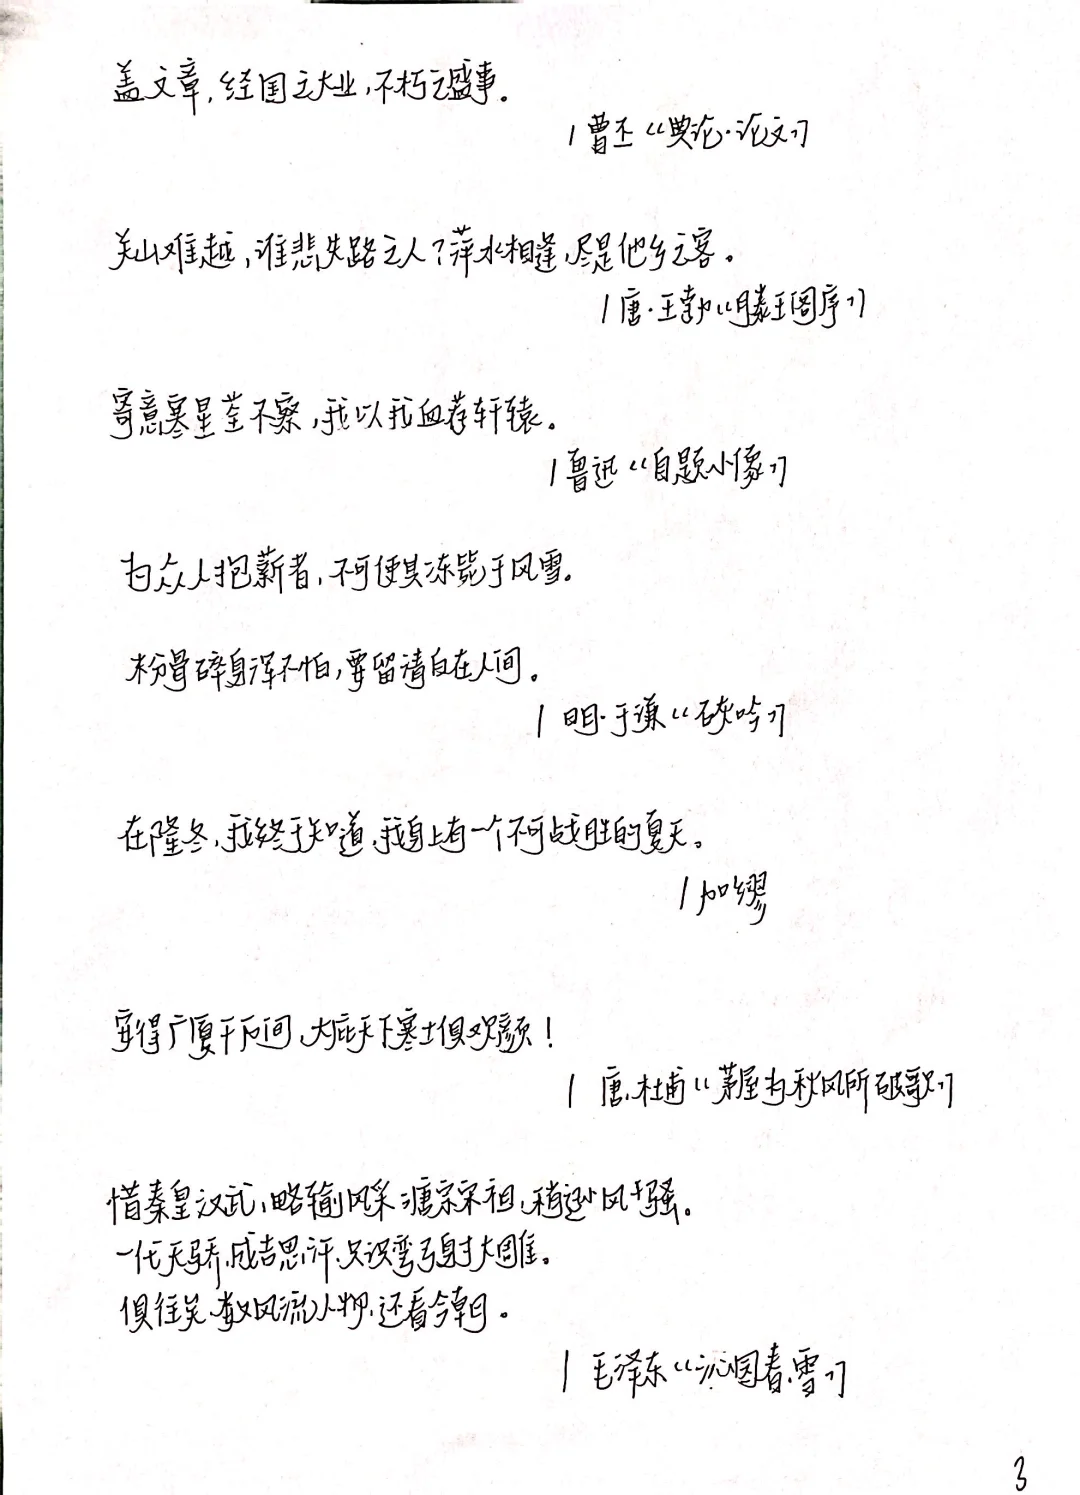 盖文章,经国之大业,不朽之盛事。
|曹丕《典论·论文》
关山难越,谁悲失路之人?萍水相逢,尽是他乡之客。
|唐·王勃《滕王阁序》
寄意寒星荃不察,我以我血荐轩辕。
|鲁迅《自题小像》
为众人抱薪者,不可使其冻毙于风雪。
粉骨碎身浑不怕,要留清白在人间。
|明·于谦《石灰吟》
在隆冬,我终于知道,我身上有一个不可战胜的夏天。
|加缪
安得广厦千万间,大庇天下寒士俱欢颜!
|唐·杜甫《茅屋为秋风所破歌》
惜秦皇汉武,略输风采;唐宗宋祖,稍逊风骚。
一代天骄,成吉思汗,只识弯弓射大雕。
俱往矣,数风流人物,还看今朝。
|毛泽东《沁园春·雪》
3